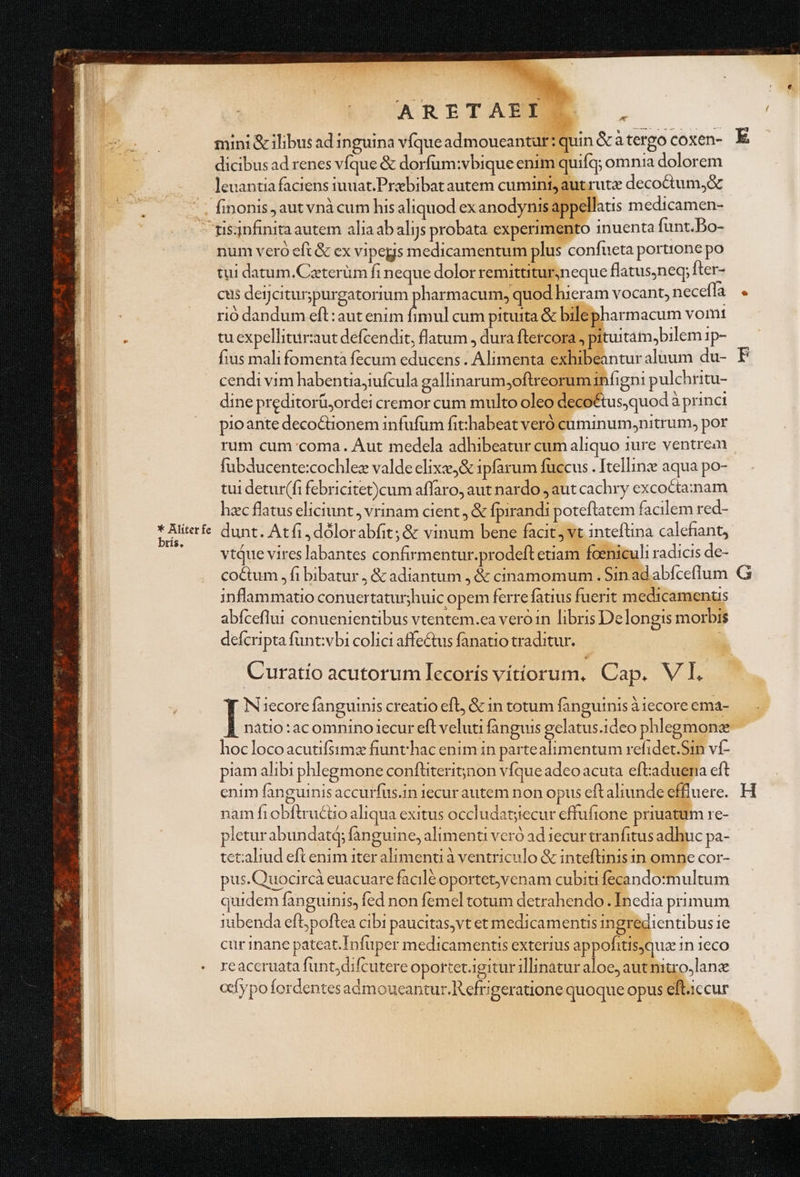 ARETAEI
mini & ilibus ad inguina vſque admoueantur: quin & à tergo coxen- E
dicibus ad renes vſque & dorſum: vbique enim quiſq; omnia dolorem
leuantia faciens iuuat. Præbibat autem cumini, aut rutæ decoctum, &
ſinonis, aut vnà cum his aliquod ex anodynis appellatis medicamen-
tis. infinita autem alia ab alijs probata experimento inuenta ſunt. Bo-
num verò eſt & ex viperis medicamentum plus conſueta portione po
tui datum. Cæterùm ſi neque dolor remittitur, neque flatus, neq; ſter-
cus deijcitur; purgatorium pharmacum, quod hieram vocant, neceſſa
rió dandum eſt: aut enim ſimul cum pituita & bile pharmacum vomi
tu expellitur: aut deſcendit, flatum, dura ſtercora, pituitam, bilem ip-
ſius mali fomenta ſecum educens. Alimenta exhibeantur aluum du- F
cendi vim habentia, iuſcula gallinarum, oſtreorum inſigni pulchritu-
dine pręditorū, ordei cremor cum multo oleo decoctus, quod à princi
pio ante decoctionem infuſum ſit: habeat verò cuminum, nitrum, por
rum cum coma. Aut medela adhibeatur cum aliquo iure ventrem
ſubducente: cochleę valde elixæ, & ipſarum ſuccus. Itellinæ aqua po-
tui detur (ſi febricitet) cum aſſaro, aut nardo, aut cachry excocta: nam
hæc flatus eliciunt, vrinam cient, & ſpirandi poteſtatem facilem red-
* Aliter fe
bris.
dunt. At ſi, dólor abſit; & vinum bene facit, vt inteſtina calefiant,
vtque vires labantes confirmentur. prodeſt etiam fœniculi radicis de-
coctum, ſi bibatur, & adiantum, & cinamomum. Sin ad abſceſſum G
inflammatio conuertatur; huic opem ferre ſatius fuerit medicamentis
abſceſſui conuenientibus vtentem. ea verò in libris De longis morbis
deſcripta ſunt: vbi colici affectus ſanatio traditur.
Curatio acutorum Iecoris vitiorum. Cap. VI.
IN iecore ſanguinis creatio eſt, & in totum ſanguinis à iecore ema-
natio: ac omnino iecur eſt veluti ſanguis gelatus. ideo phlegmonæ
hoc loco acutiſsimæ fiunt: hac enim in parte alimentum reſidet. Sin vſ-
piam alibi phlegmone conſtiterit; non vſque adeo acuta eſt: aduena eſt
enim ſanguinis accurſus. in iecur autem non opus eſt aliunde effluere. H
nam ſi obſtructio aliqua exitus occludat; iecur effuſione priuatum re-
pletur abundatq; ſanguine, alimenti verò ad iecur tranſitus adhuc pa-
tet: aliud eſt enim iter alimenti à ventriculo & inteſtinis in omne cor-
pus. Quocircà euacuare facilè oportet, venam cubiti ſecando: multum
quidem ſanguinis, ſed non ſemel totum detrahendo. Inedia primum
iubenda eſt, poſtea cibi paucitas, vt et medicamentis ingredientibus ie
cur inane pateat. Inſuper medicamentis exterius appoſitis, quæ in ieco
re aceruata ſunt, diſcutere oportet. igitur illinatur aloe, aut nitro, lanæ
œſypo ſordentes admoueantur. Refrigeratione quoque opus eſt. iecur